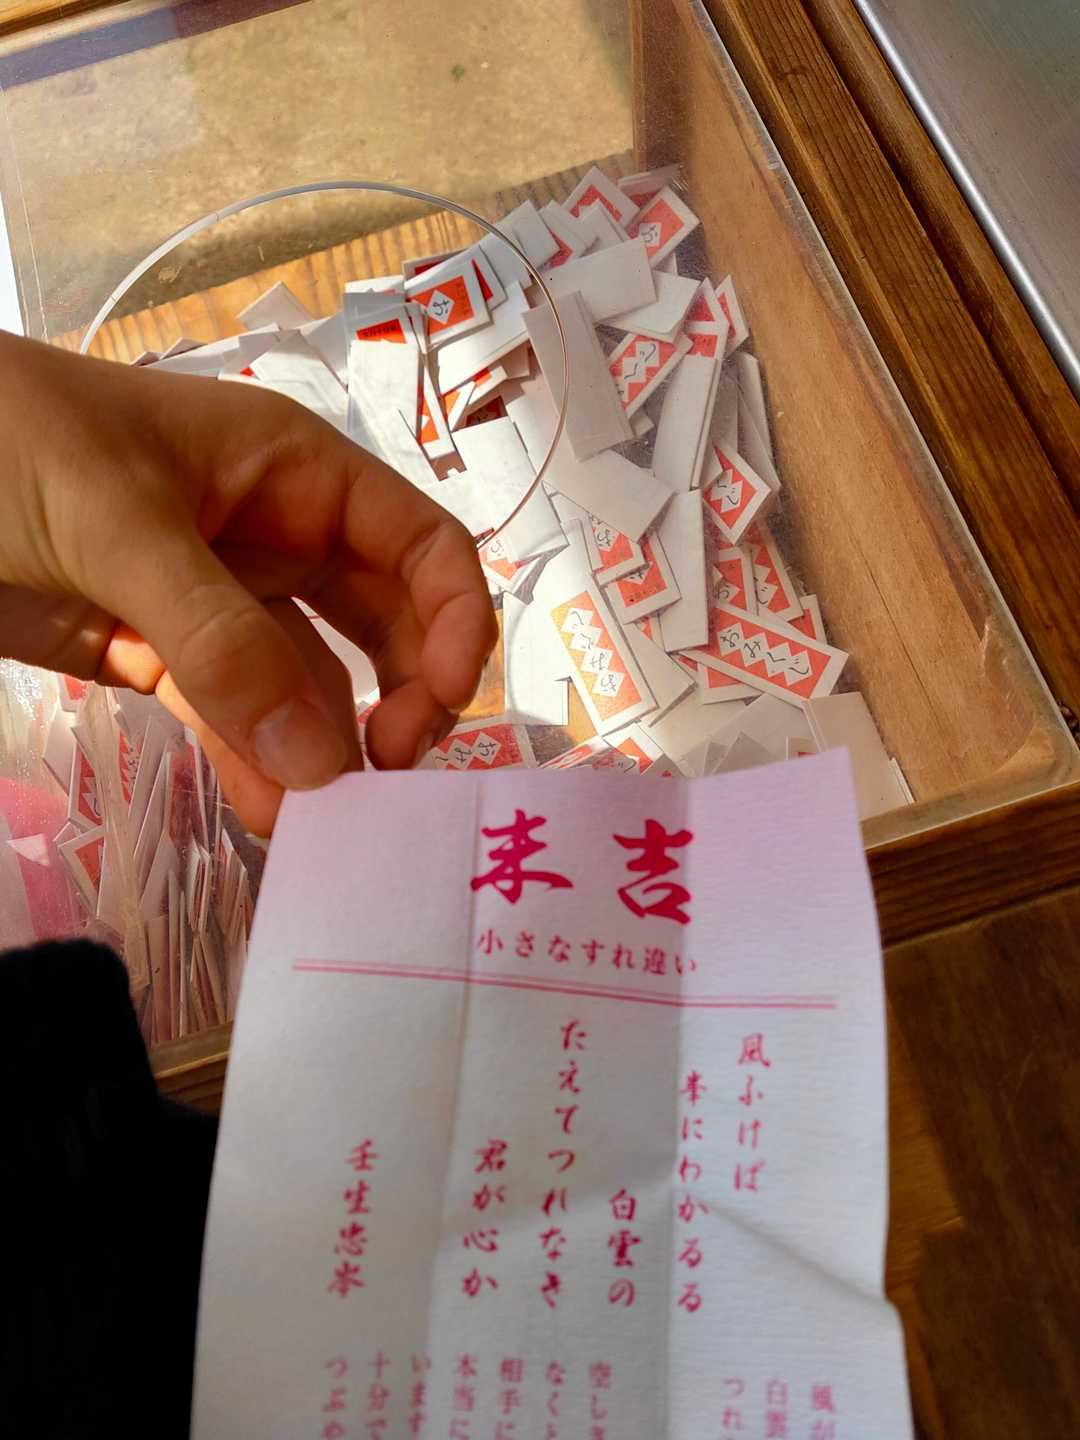 末吉
小さなすれ違い
風ふけば
峯にわかるる
白雲の
たえてつれなき
君が心か
壬生忠岑
風が
白雲
つれ
空しさ
なくと
相手に
本当に
います
十分で
つぶや
おみくじ
おみくじ